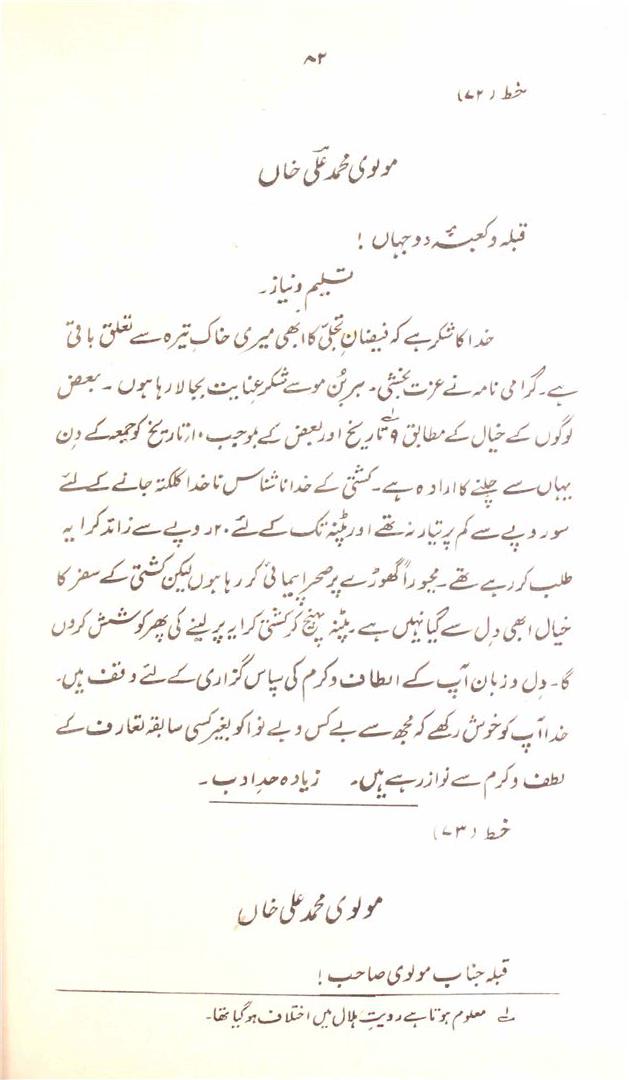 ۸۲
خط (۷۲)
مولوی محمد علی خاں
قبلہ و کعبۂ دو جہاں !
تسلیم و نیاز۔
خدا کا شکر ہے کہ فیضانِ تجلّی کا ابھی میری خاکِ تیرہ سے تعلق باقی
ہے۔ گرامی نامہ نے عزت بخشی۔ ہر بُن مو سے شکرِ عنایت بجا لا رہا ہوں ۔ بعض
لوگوں کے خیال کے مطابق ۹ؔ۱ تاریخ اور بعض کے بموجب ۱۰ر تاریخ کو جمعہ کے دن
یہاں سے چلنے کا ارادہ ہے۔ کشتی کے خدا نا شناس ناخدا کلکتہ جانے کے لئے
سو روپے سے کم پر تیار نہ تھے اور پٹنہ تک کے لئے ۲۰ر روپے سے زائد کرایہ
طلب کر رہے تھے۔ مجبوراً گھوڑے پر صحرا پیمائی کر رہا ہوں لیکن کشتی کے سفر کا
خیال ابھی دل سے گیا نہیں ہے۔ پٹنہ پہنچ کر کشتی کرایہ پر لینے کی پھر کوشش کروں
گا۔ دل و زبان آپ کے الطاف و کرم کی سپاس گزاری کے لئے وقف ہیں۔
خدا آپ کو خوش رکھے کہ مجھ سے بے کس و بے نوا کو بغیر کسی سابقہ تعارف کے
لطف و کرم سے نواز رہے ہیں۔ زیادہ حدِ ادب ۔
خط (۷۳)
مولوی محمد علی خاں
قبلہ جناب مولوی صاحب !
۱؎ معلوم ہوتا ہے رویتِ ہلال میں اختلاف ہو گیا تھا۔